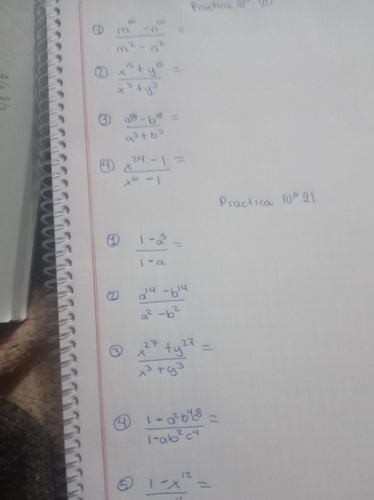 Practica Nº 20
① m¹⁰ - n¹⁰ / m² - n² =
② x¹⁵ + y¹⁵ / x³ + y³ =
③ a¹⁸ - b¹⁸ / a³ + b³ =
④ x²⁴ - 1 / x⁶ - 1 =
Practica Nº 21
① 1 - a⁵ / 1 - a =
② a¹⁴ - b¹⁴ / a² - b²
③ x²⁷ + y²⁷ / x³ + y³ =
④ 1 - a²b⁴c⁸ / 1 - ab²c⁴ =
⑤ 1 - x¹² =